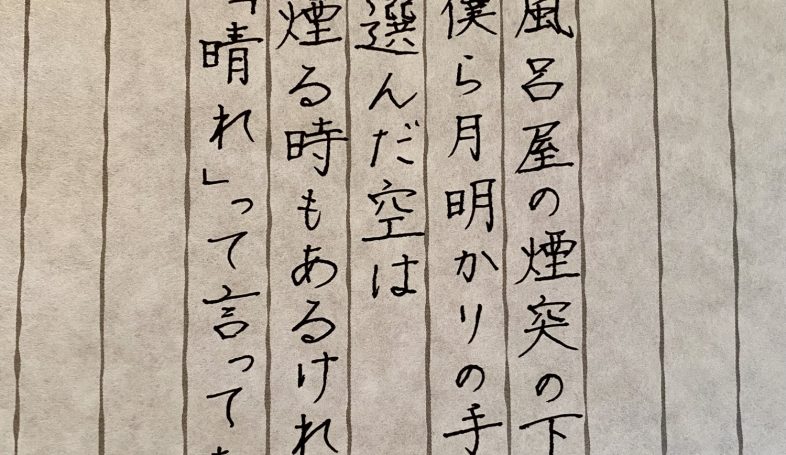 風呂屋の煙突の下
僕ら月明かりの手
選んだ空は
煙る時もあるけれ
「晴れ」って言って